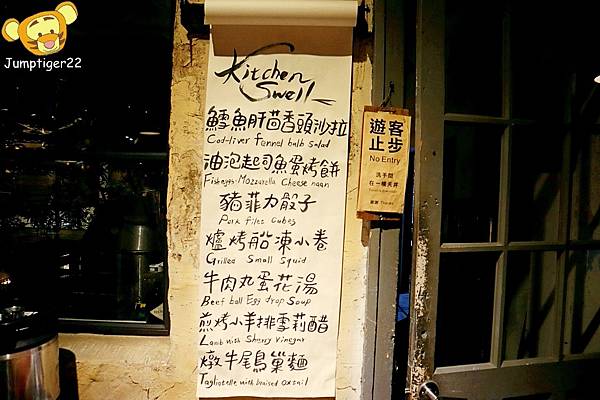 Jumptiger22
Kitchen
Swell
鱈魚肝茴香頭沙拉
Cod-liver fennel bulb Salad
油泡起司魚蛋烤餅
Fish eggs Mozzarella Cheese naan
豬菲力骰子
Pork filet Cubes
爐烤船凍小卷
Grilled Small Squid
牛肉丸蛋花湯
Beef ball Egg drop Soup
煎烤小羊排雪莉醋
Lamb with Sherry Vinegar
燉牛尾鳥巢麵
Tagliatelle with braised oxtail
遊客
止步
No Entry
洗手間
在一樓天井
謝謝 Thanks